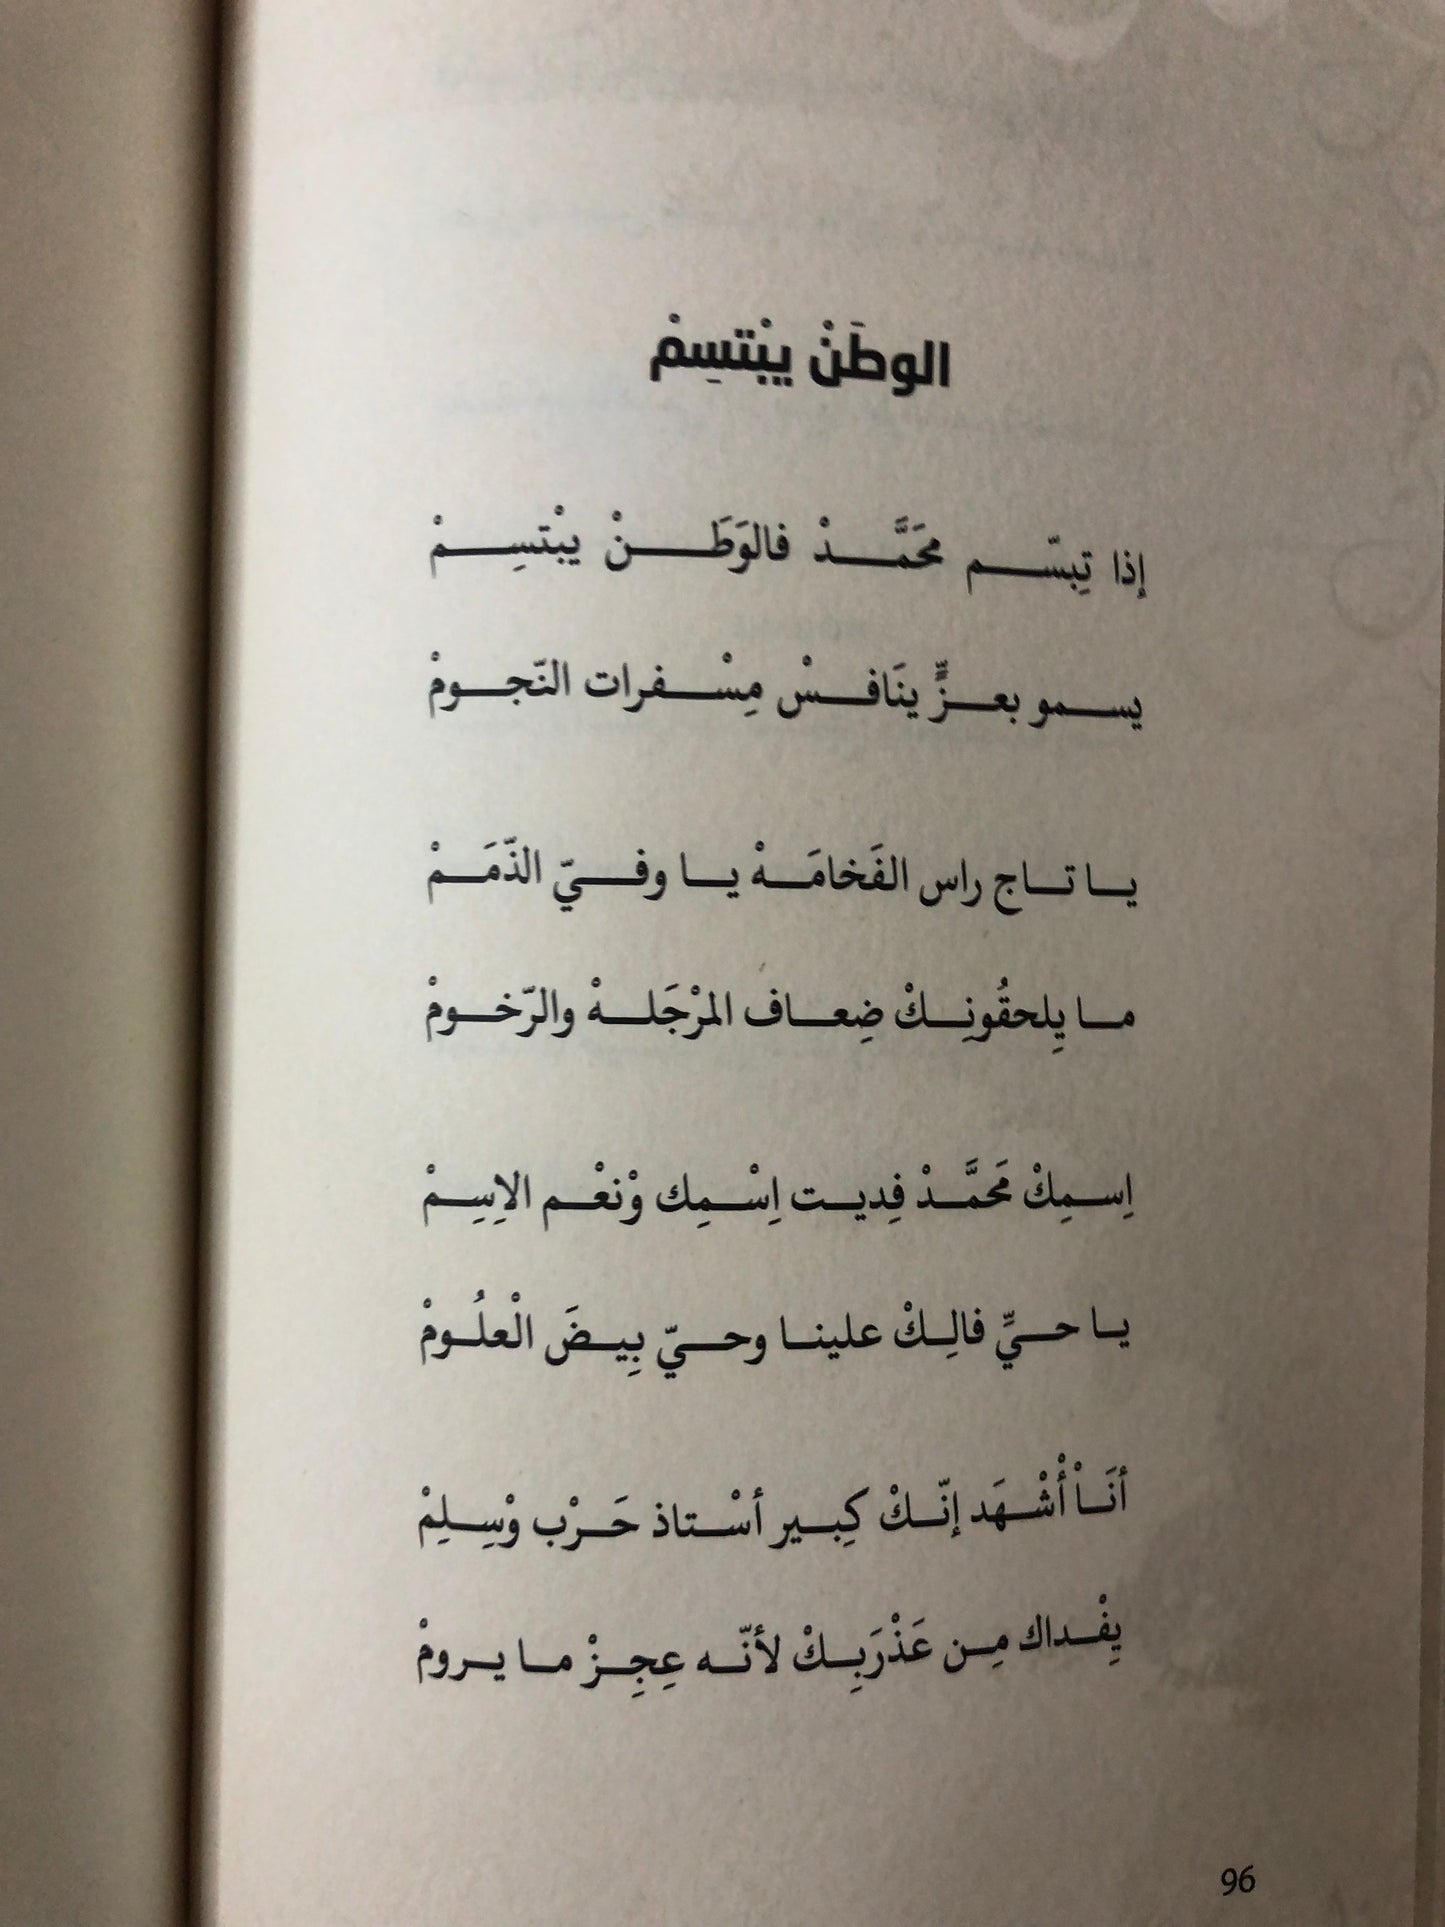 الوطَنْ يبْتسِمْ
إذا تِبسّم محَمَّدْ فالوَطَنْ يبْتسِمْ
يسمو بعزٍّ ينَافسْ مِسْفرات النّجومْ
يا تاج راس الفَخامَهْ يا وفيّ الذّمَمْ
ما يِلحقُونِكْ ضِعاف المرْجَلهْ والرّخومْ
اِسمِكْ مَحمَّدْ فِديت اِسْمِك وْنعْم الاِسِمْ
يا حيِّ فالِكْ علينا وحيّ بِيضَ الْعلُومْ
أنَاْ أْشْهَد إنّكْ كِبير أسْتاذ حَرْب وْسِلِمْ
يِفْداك مِن عَذْرَبِكْ لأنّه عِجِزْ ما يرومْ
96